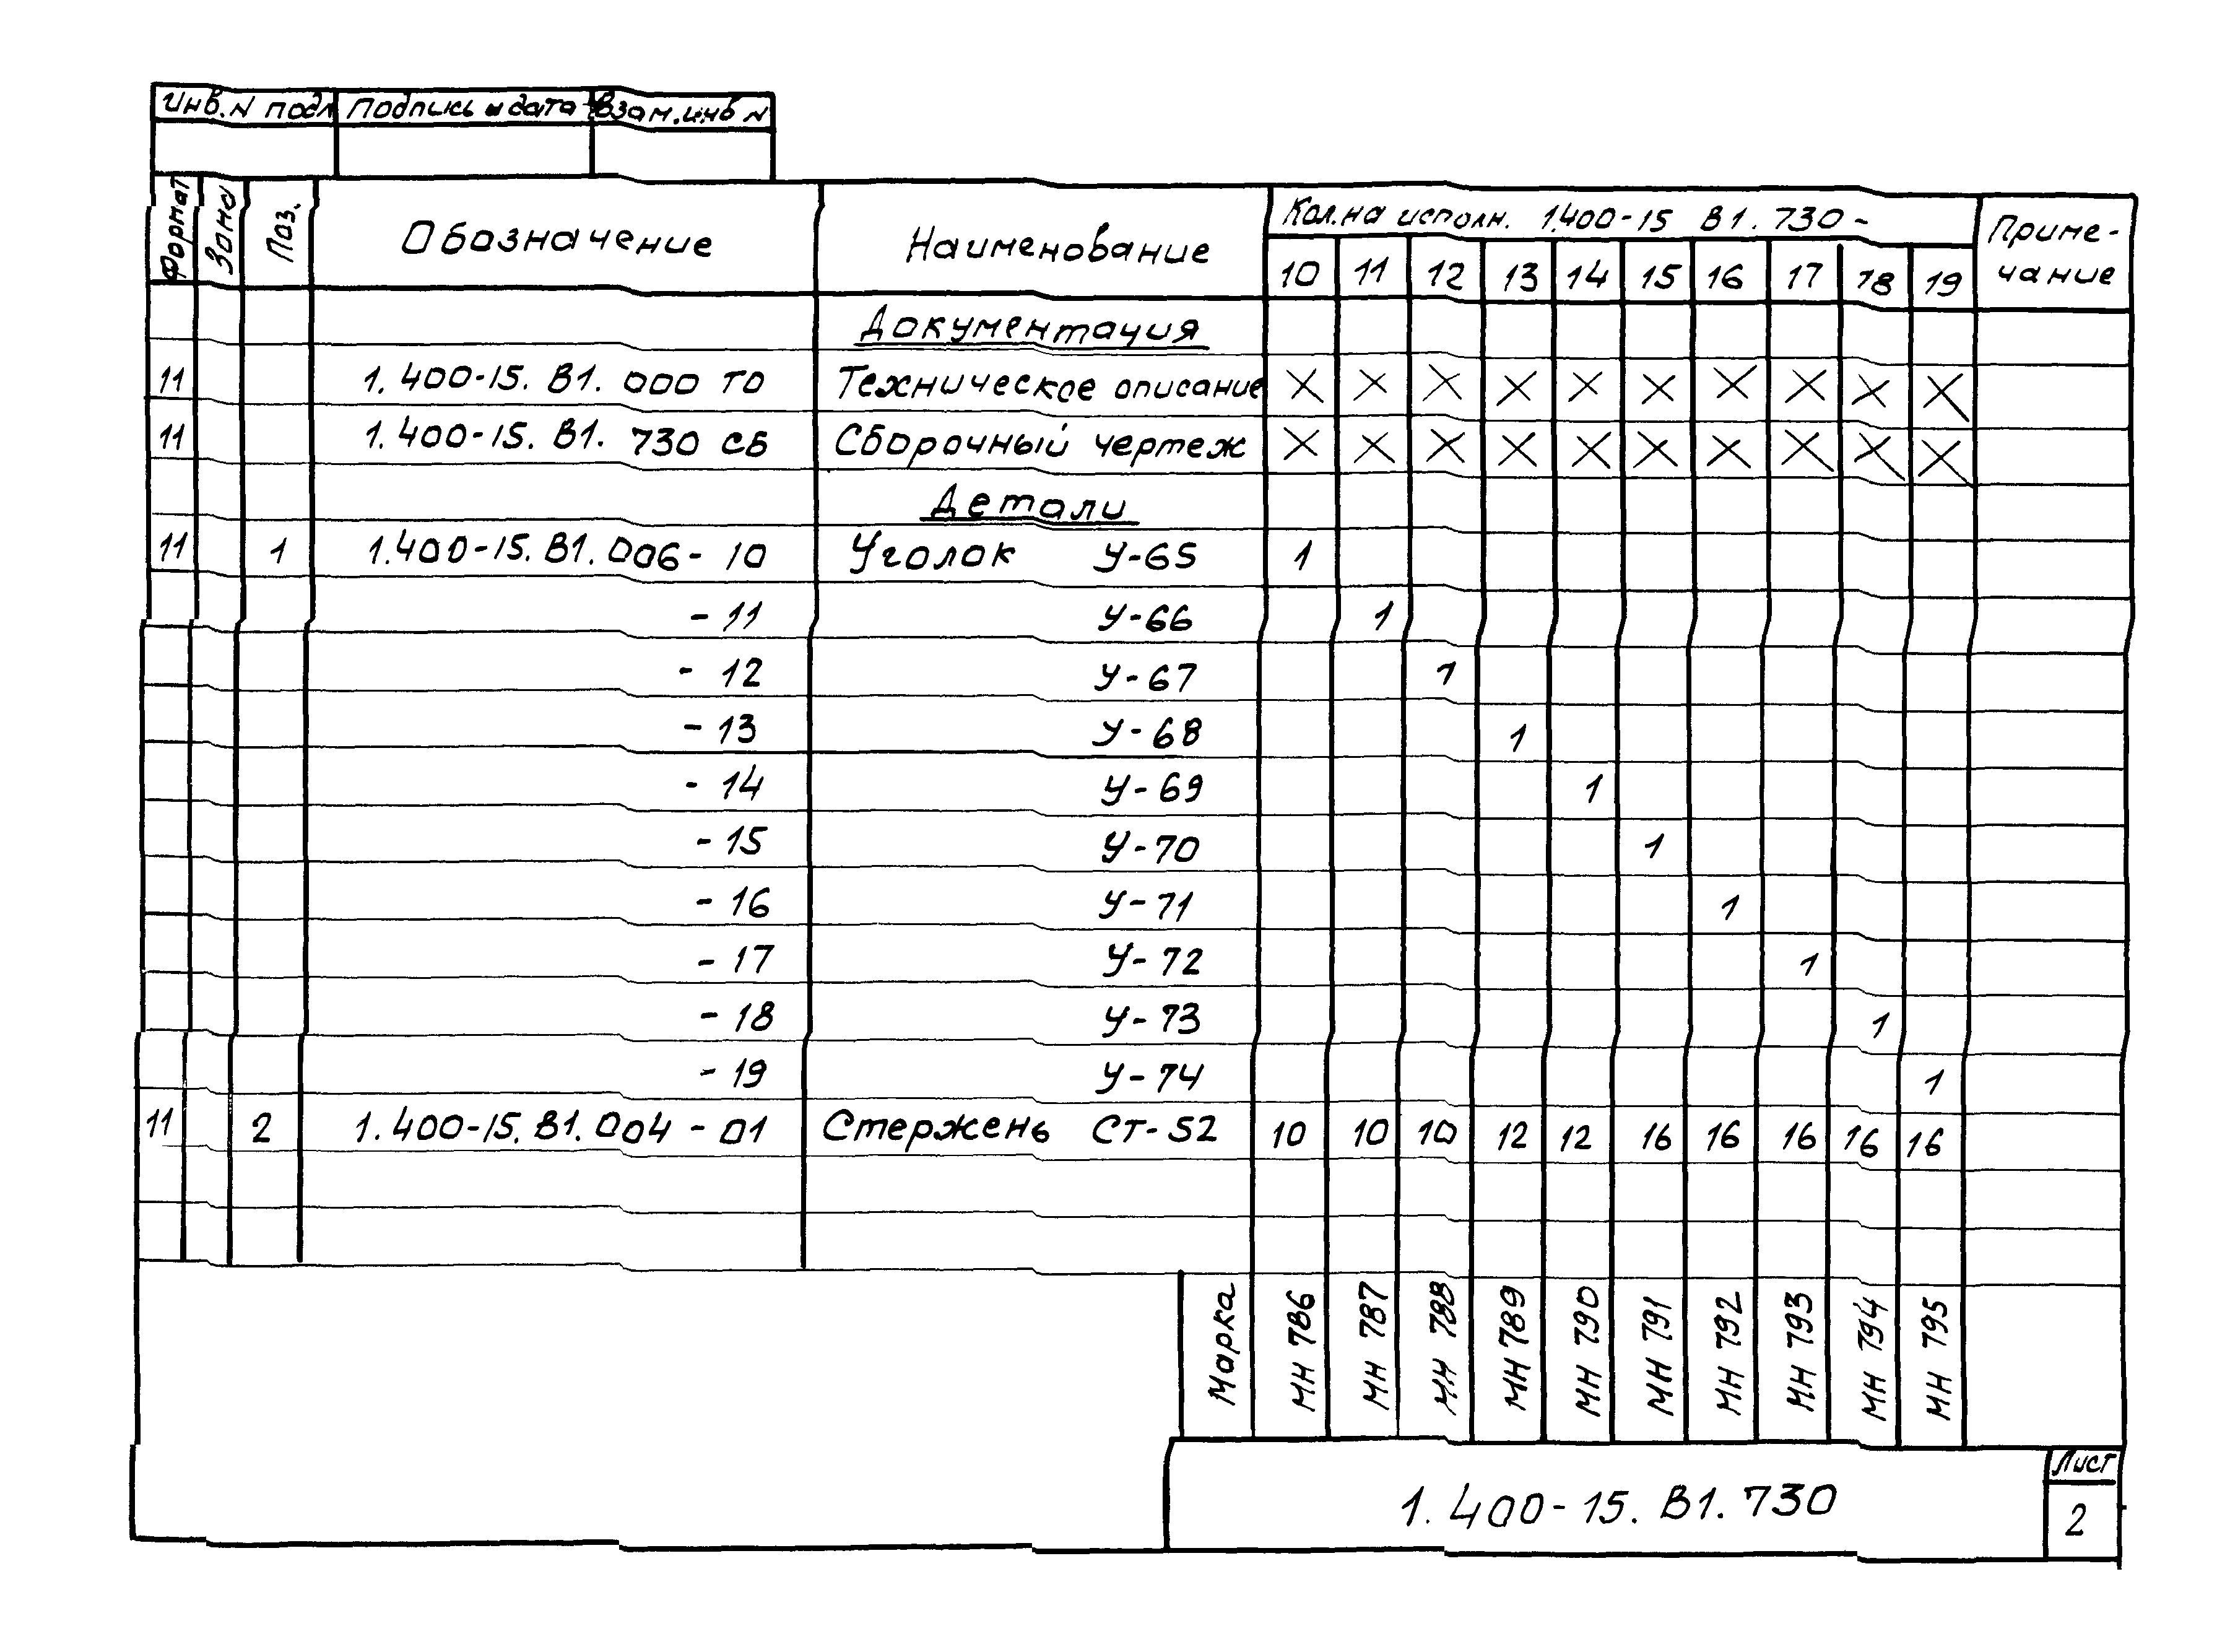 Инв.N подл Подпись и дата Взам.инв N
Формат Зона Поз. Обозначение Наименование Кол.на исполн. 1.400-15 В1.730- Приме-
чание
10 11 12 13 14 15 16 17 18 19
Документация
11 1.400-15.В1.000 ТО Техническое описание X X X X X X X X X X
11 1.400-15.В1.730 СБ Сборочный чертеж X X X X X X X X X X
Детали
11 1 1.400-15.В1.006-10 Уголок У-65 1
-11 У-66 1
-12 У-67 1
-13 У-68 1
-14 У-69 1
-15 У-70 1
-16 У-71 1
-17 У-72 1
-18 У-73 1
-19 У-74 1
11 2 1.400-15.В1.004-01 Стержень СТ-52 10 10 10 12 12 16 16 16 16 16
Марка МН 786 МН 787 МН 788 МН 789 МН 790 МН 791 МН 792 МН 793 МН 794 МН 795
1.400-15.В1.730
Лист
2